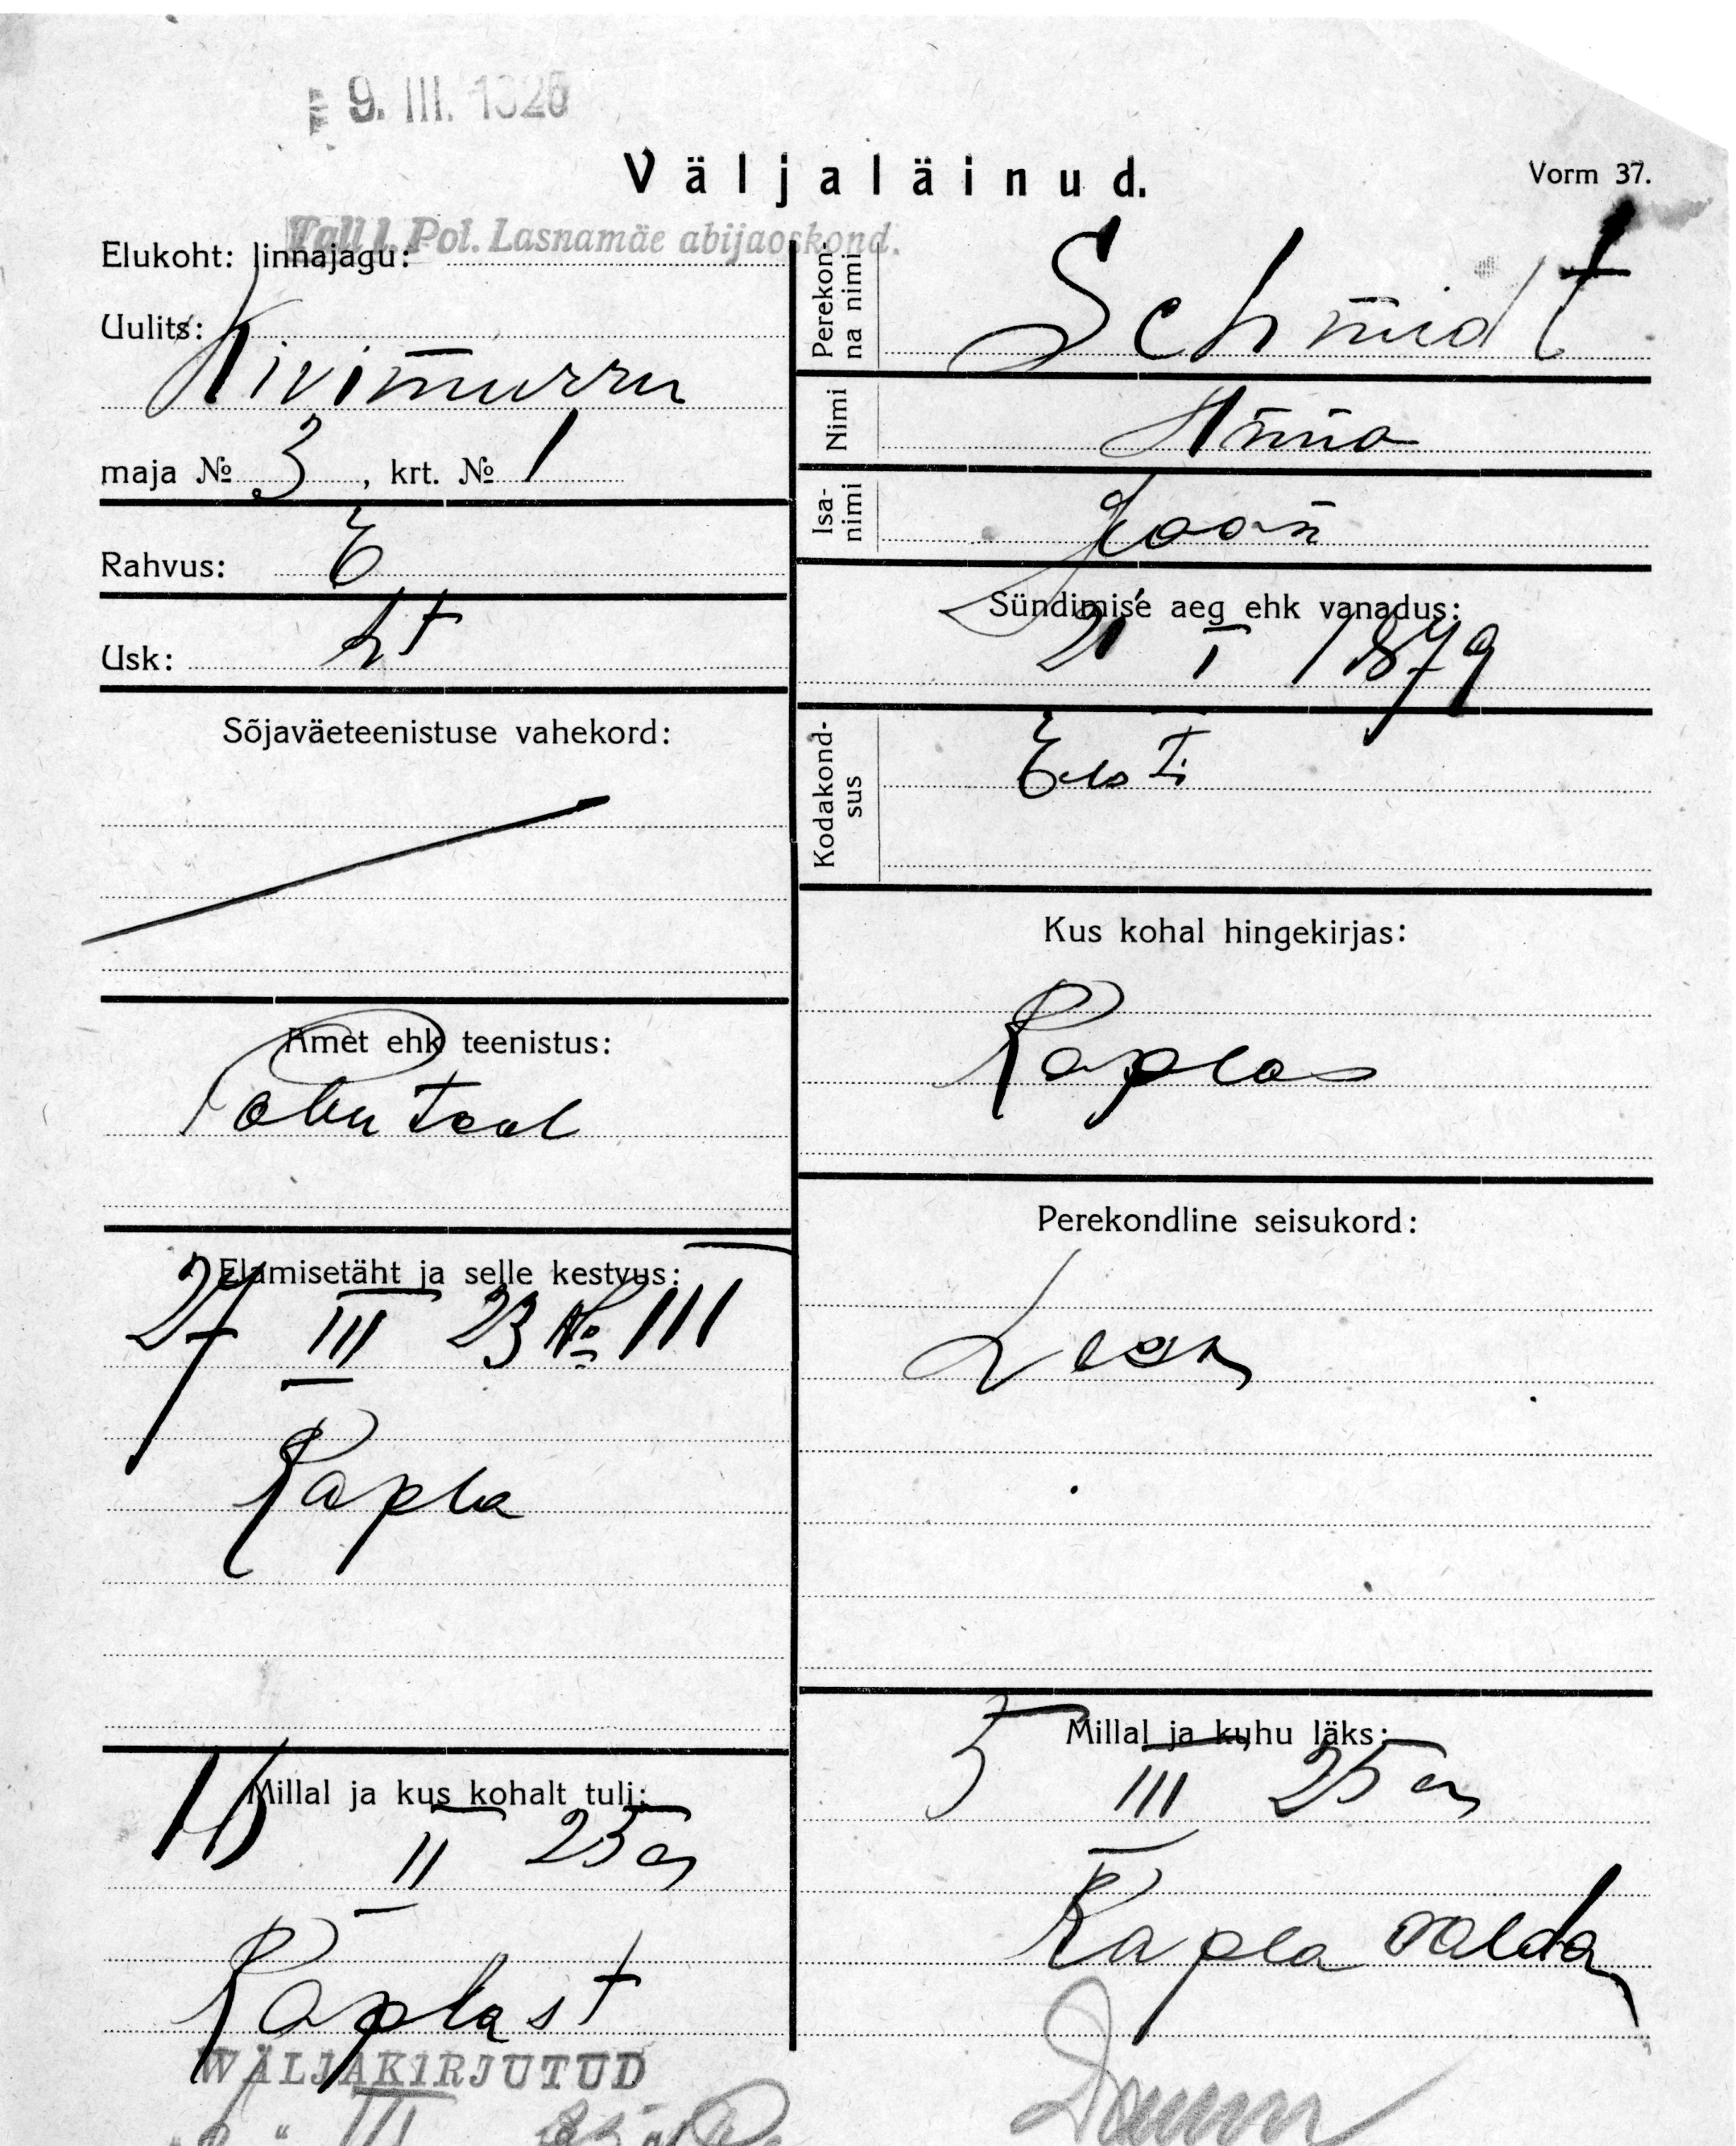 9. III. 1925
Väljaläinud.
Vorm 37.
Tall. I. Pol. Lasnamäe abijaoskond.
Elukoht: linnajagu:
Uulits: Kivimurru
maja № 3, krt. № 1
Rahvus: E
Usk: Lt
Sõjaväeteenistuse vahekord:
Amet ehk teenistus:
Elamisetäht ja selle kestvus:
27 III 23 № 111
Rapla
Millal ja kus kohalt tuli:
II 25 a
Raplast
WÄLJAKIRJUTUD
III
Perekonna nimi
Schmidt
Nimi
Anna
Isanimi
Jaan
Sündimise aeg ehk vanadus:
21 I 1879
Kodakondsus
Eesti
Kus kohal hingekirjas:
Raplas
Perekondline seisukord:
Lesk
Millal ja kuhu läks:
5 III 25 a
Rapla valda